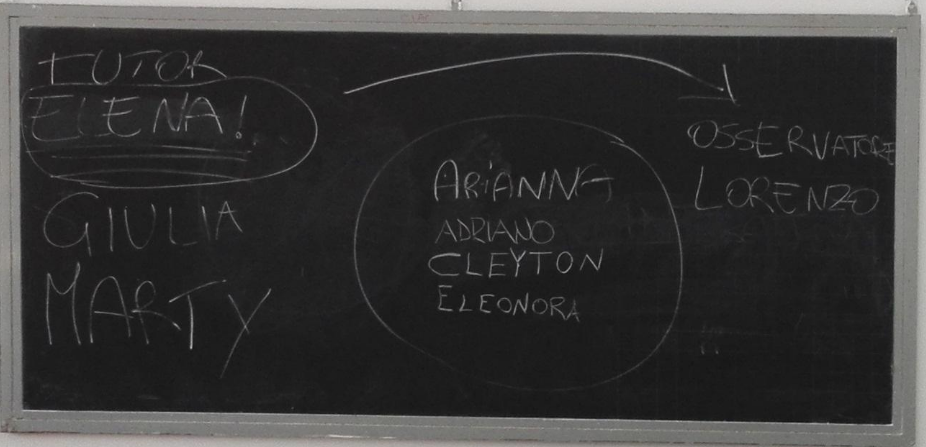 TUTOR
ELENA!
GIULIA
MARTY
ARiANNA
ADRIANO
CLEYTON
ELEONORA
OSSERVATORE
LORENZO